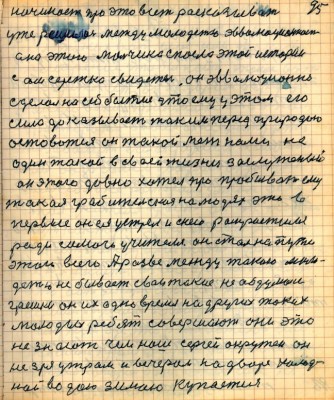 95
начинает про это всем рассказыват
уже решился между молодежь эвволюционист
а на этого мальчика спасло этой истории
сам серетно свидеты, он эвволюционно
сделал на себ бытие что ему у этом его
сило доказывает таким перед природою
остовотся он такой мет намы не
один такой в своей жизни
он этого довно хотел про пробыват ему
такая на людях это в
первые он ея устрел и снею
ради самого учителя он стал на пути
этого всего А разве между такою
дежи не бывает сваи такие не обдуманы
грешки он их одно время на других таких
молодых ребят совершают они это
не знают чем наш сергей окрутен он
не зря утрам и вечером на дворе холод
ной водою зимою купается